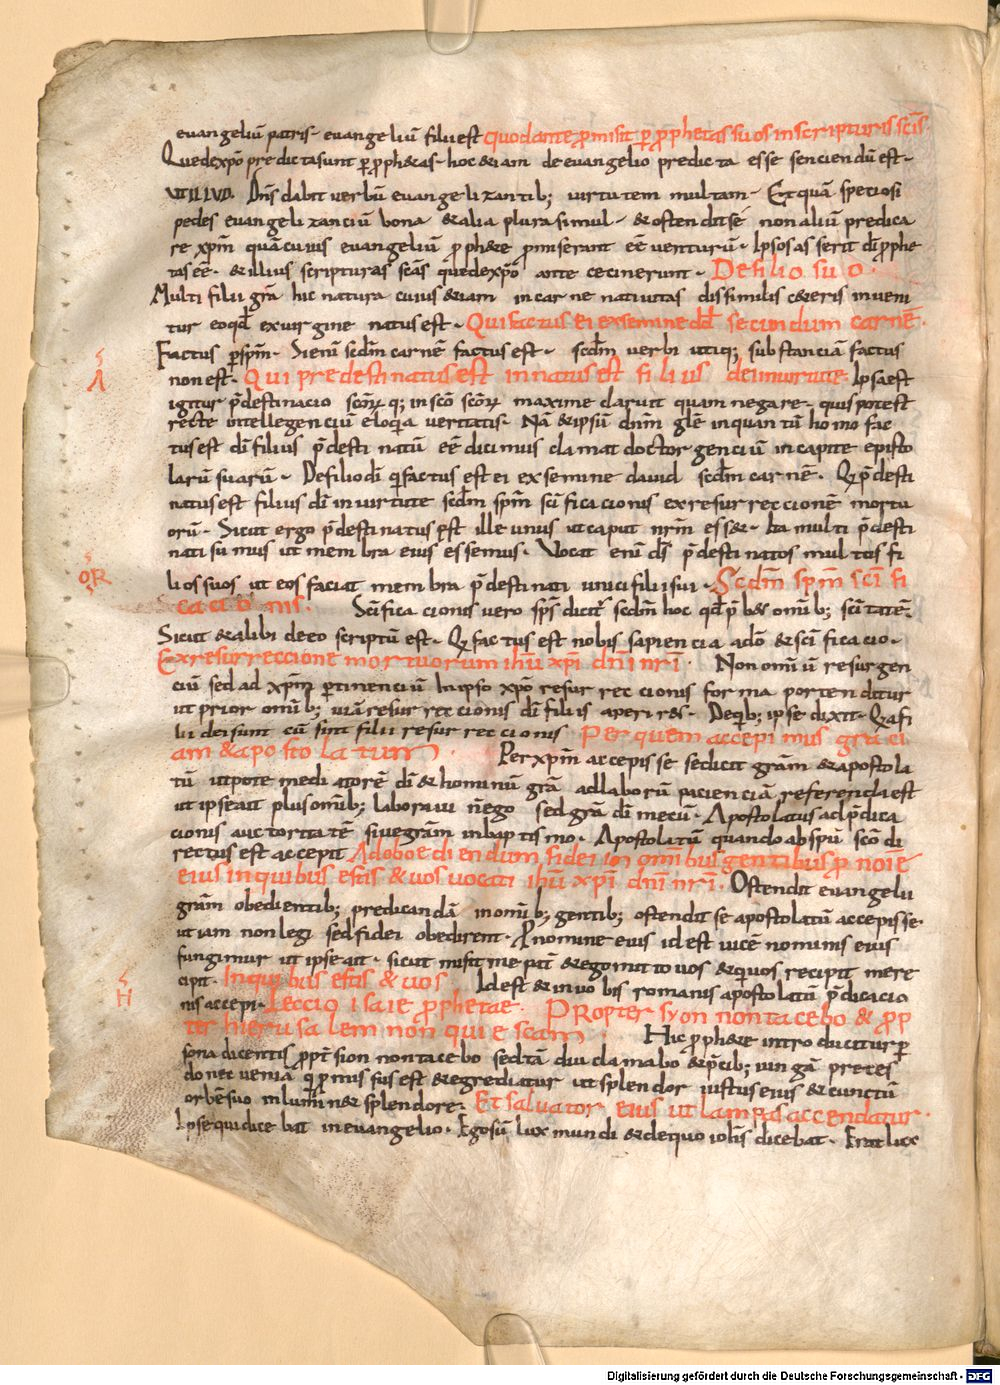 euangeliū patris· euangeliū filii est quod ante ꝓmisit ꝑ ꝓphetas suos in scripturis scīs·
Que de xp̄o predicta sunt ꝑ ꝓph&as· hoc &iam de euangelio predicta esse senciendū est·
UT ILLUD. Dn̄s dabit uerbū euangelizantib; uirtutem multam· Et quā speciosi
pedes euangelizanciū bona &alia plura simul· &ostendit se non aliū predica
re xp̄m quā cuius euangeliū ꝓph&e ꝓmiserant eē uenturū· Ipsos asserit dī ꝓphe
tas eē· &illius scripturas scās que de xp̄o ante cecinerunt· De filio suo·
Multi filii grā hic natura cuius &iam in carne natiuitas dissimilis c&eris inueni
tur eo qd̄ ex uirgine natus est· Qui factus ei ex semine dd̄ secundum carnē·
Factus ꝑ sp̄m· Si enī scdm̄ carnē factus est· scdm̄ uerbi utiq; substanciā factus
non est· Qui predestinatus est in natus est filius dei in uirtute Ipsa est
igitur p̄destinacio scōꝝ q; in scō scōꝝ maxime claruit quam negare· quis potest
recte intellegenciū eloq̄a ueritatis· Nā &ipsū dnm̄ glē in quantū homo fac
tus est dī filius p̄destinatū eē dicimus clamat doctor genciū in capite episto
larū suarū· De filio dī q̄ factus est ei ex semine dauid scdm̄ carnē· Q̄ p̄desti
natus est filius dī in uirtute scdm̄ sp̄m sc̄ificacionis ex resurreccionē mortu
orū· Sicut ergo p̄destinatus ꝑst ille unus ut caput nr̄m ess&· Ita multi p̄desti
nati sumus ut membra eius essemus· Uocat enī dī p̄destinatos multos fi
lios suos ut eos faciat membra p̄destinati unici filii sui· Scdm̄ sp̄m sc̄īfi
cacionis· Sc̄ificacionis uero sp̄s dicit̄ scdm̄ hoc qd̄ p̄b& omib; sc̄itatē·
Sicut &alibi de eo scriptū est· Q̄ factus est nobis sapiencia a dō &sc̄ificacio·
Ex resurreccione mortuorum ihū xp̄i dnī nrī· Non omī ū resurgen
ciū sed ad xp̄m ꝑtinenciū In ipso xp̄o resurreccionis forma portenditur
ut prior omib; uiā resurreccionis dī filiis aperir&· De q̄b; ipse dixit· Q̄a fi
lii dei sunt cū sint filii resurreccionis Per quem accepimus graci
am &apostolatum· Per xp̄m accepisse se dicit grām &apostola
tū utpote mediatorē dī &hominū grā ad laborū pacienciā referenda est
ut ipse ait plus omib; laboraui n̄ ego sed grā dī mecū· Apostolatus ad p̄dica
cionis auctoritatē siue grām in baptismo· Apostolatū quando ab sp̄u scō di
rectus est accepit Ad oboediendum fidei in omnibus gentibus ꝓ noīe
eius in quibus estis &uos uocati ihū xp̄i dnī nrī· Ostendit euangelii
grām obedientib; predicandā in omib; gentib; ostendit se apostolatū accepisse·
ut iam non legi sed fidei obedirent· Ꝓ nomine eius id est uice nominis eius
fungimur ut ipse ait· sicut misit me pat̄ &ego mitto uos &quos recipit me re
cipit· In quibus estis &uos Id est &in uobis romanis apostolatū p̄dicacio
nis accepi· Leccio isaie ꝓphetae· PRopter syon non tacebo &ꝓp
ter hierusalem non quiescam Hic ꝓph&e introducitur ꝑ
sona dicentis ꝓpt̄ sion non tacebo sed tā diu clamabo &p̄cib; iungā preces
donec ueniā q̄ ꝓmissus est &egrediatur ut splendor iustus eius &cunctū
orbē suo inlumin& splendore· Et saluator eius ut lampas accendatur·
Ipse qui dicebat in euangelio· Ego sū lux mundi &de quo ioh̄s dicebat· Erat lux
Λ
OR
H
Digitalisierung gefördert durch die Deutsche Forschungsgemeinschaft - DFG